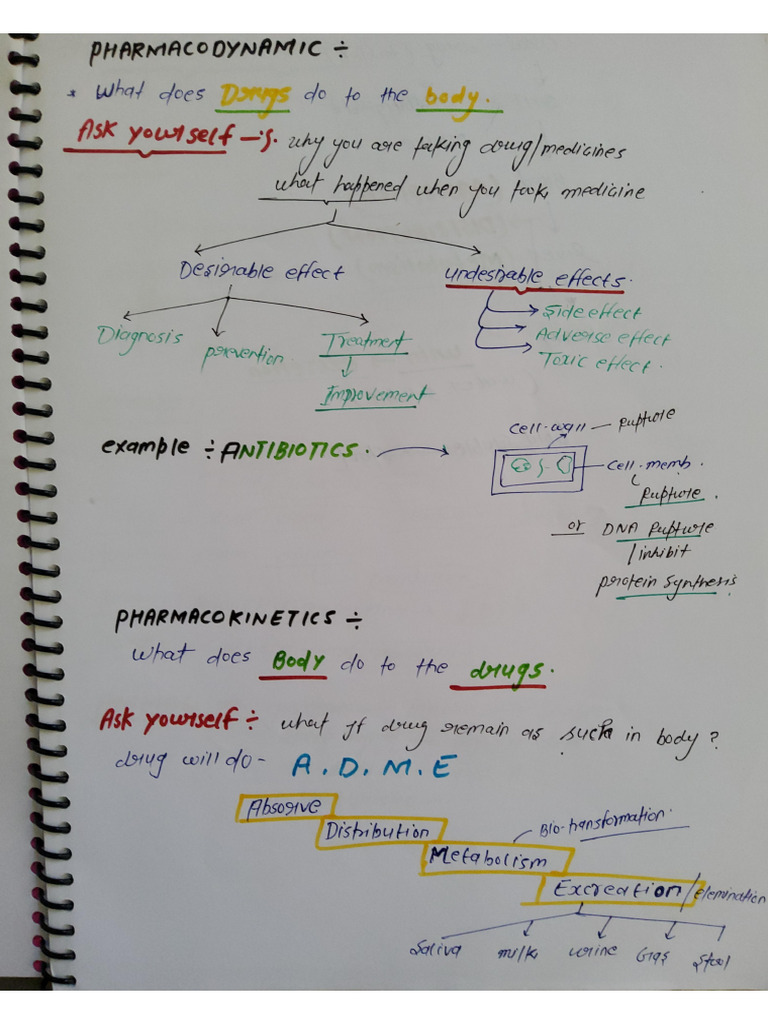 PHARMACODYNAMIC ÷
* What does Drugs do to the body.
Ask yourself –:
why you are taking drug/medicines
what happened when you took medicine
Desirable effect
undesirable effects.
Diagnosis
prevention
Treatment
Improvement
Side effect
Adverse effect
Toxic effect.
example ÷ ANTIBIOTICS.
cell-wall – Rupture
cell-memb.
Rupture.
or DNA Rupture
/inhibit
protein synthesis
PHARMACOKINETICS ÷
What does Body do to the drugs.
Ask yourself ÷ what if drug remain as such in body?
drug will do - A.D.M.E
Absorive
Distribution
Bio-transformation.
Metabolism
Excreation/elemination
Saliva
milk
urine
Gas
Stool